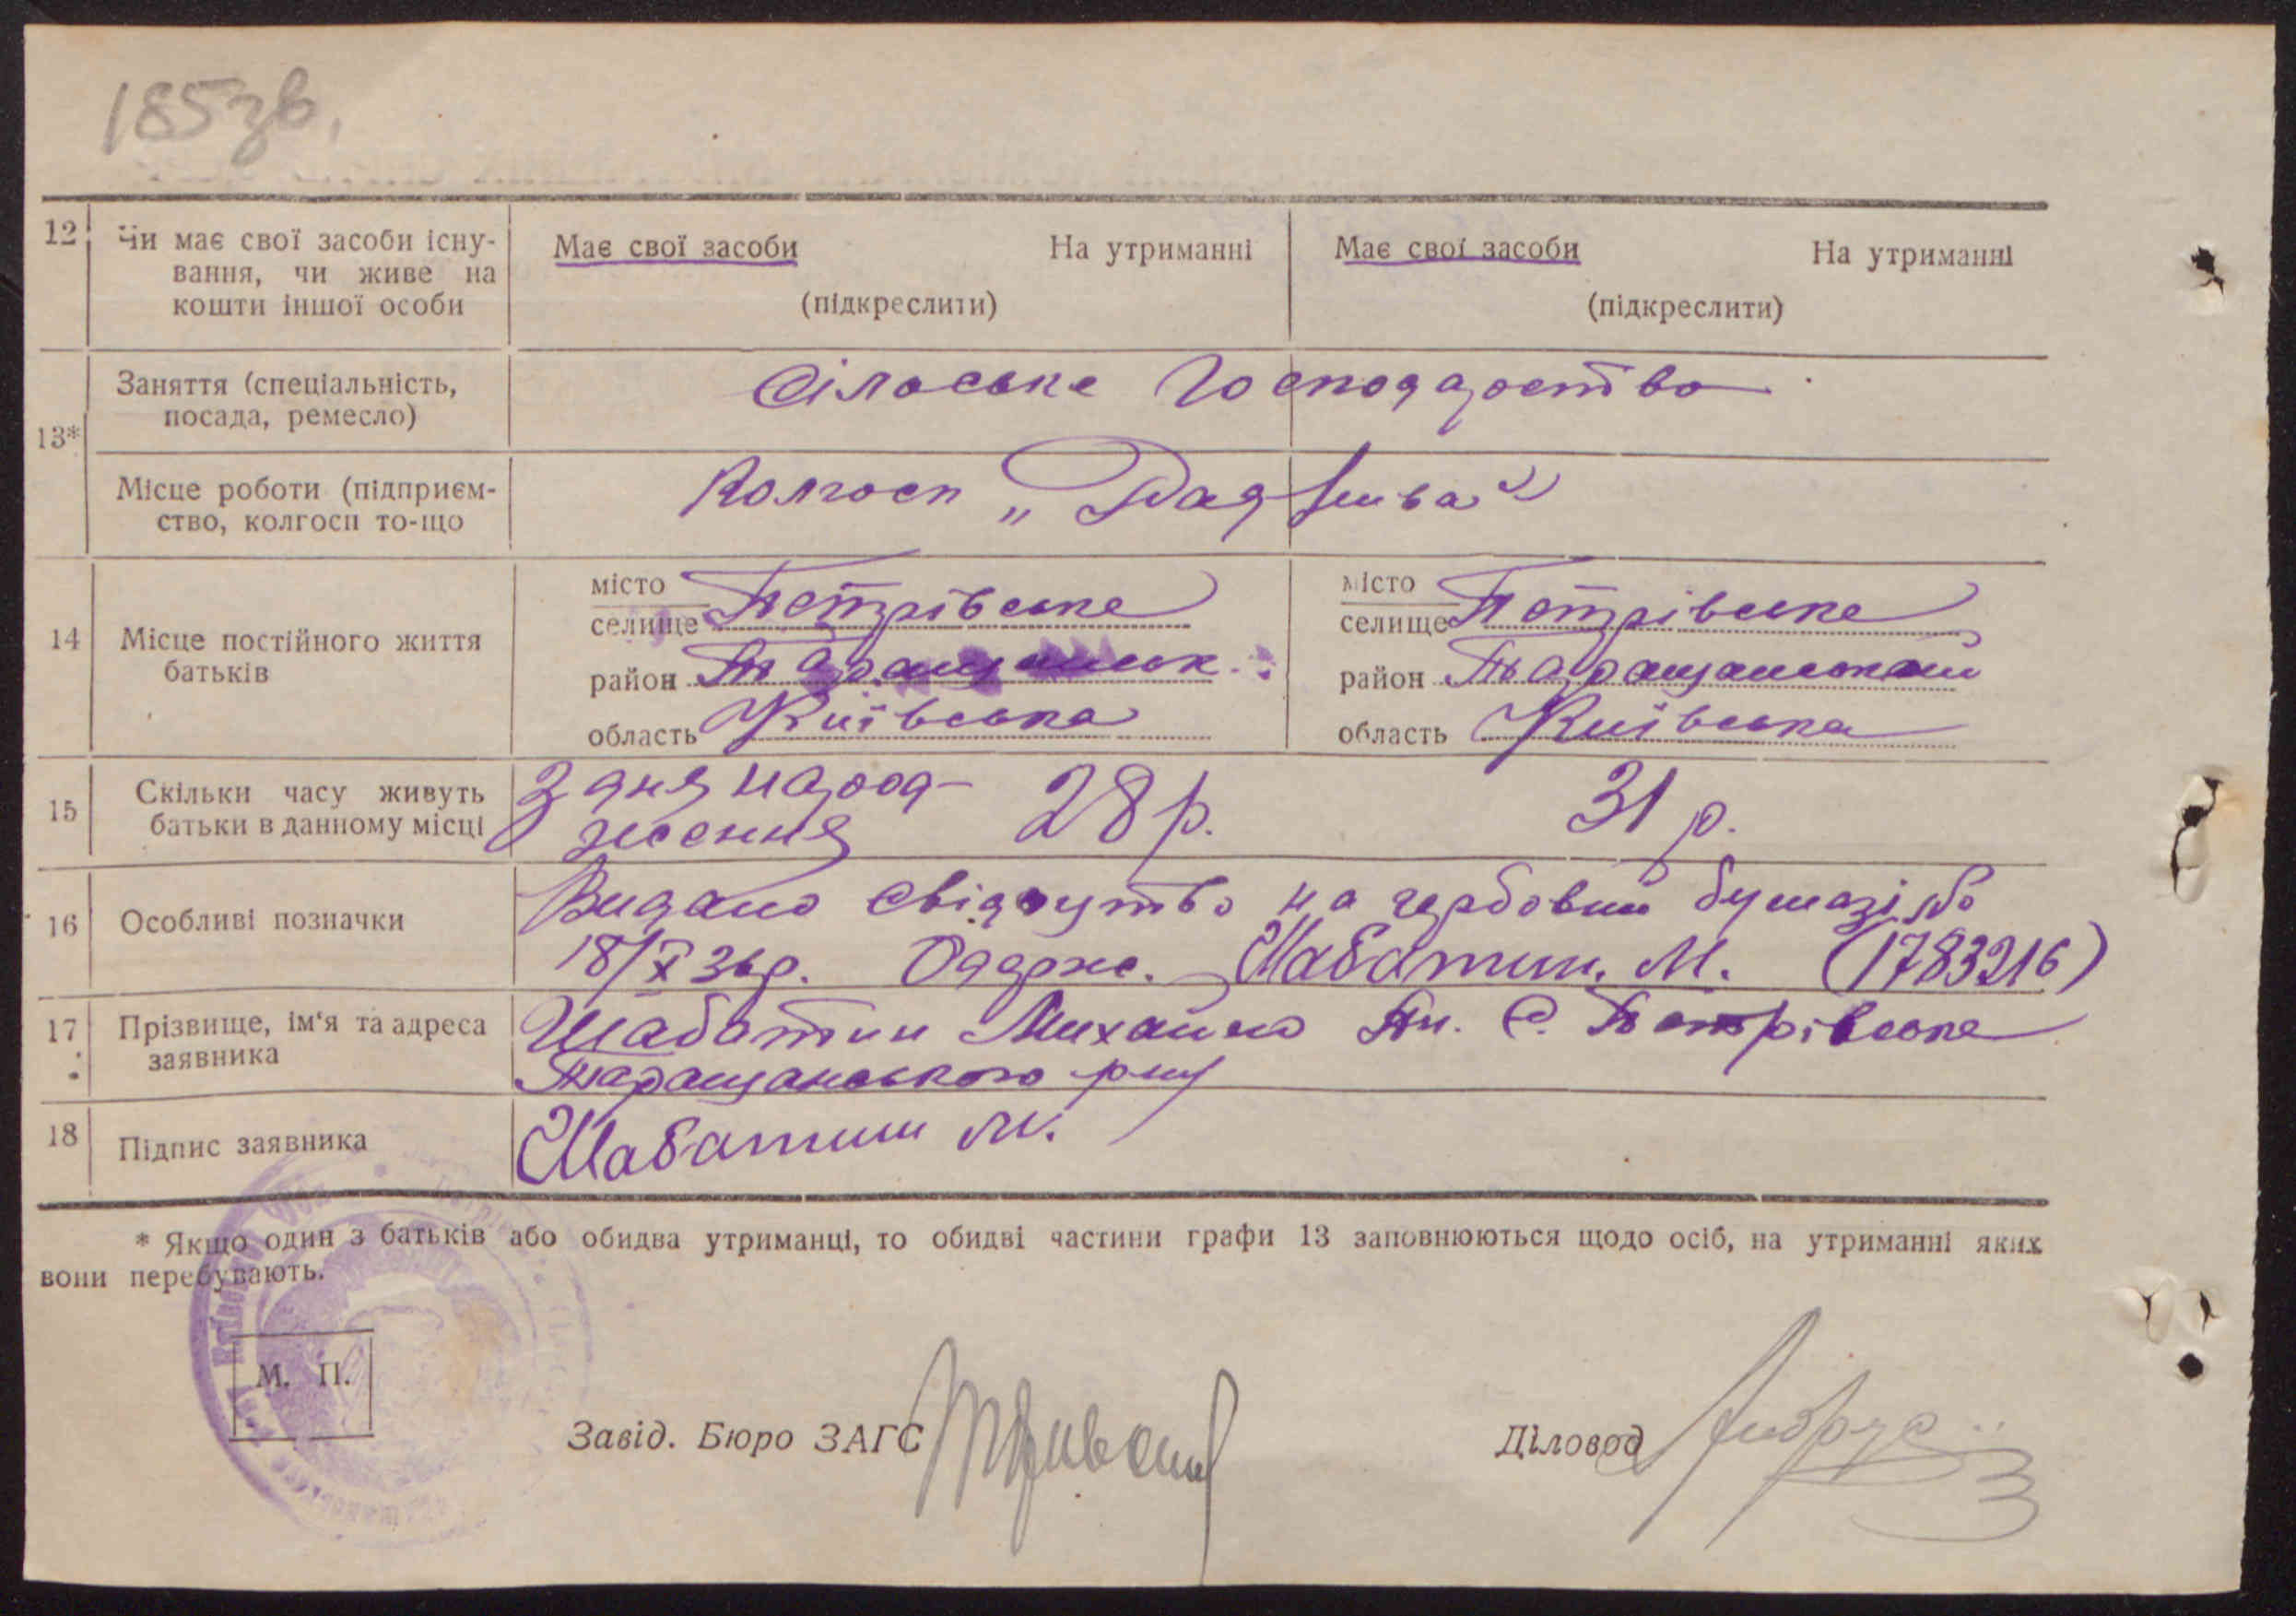 185 зв.
12 Чи має свої засоби існу- Має свої засоби На утриманні Має свої засоби На утриманні
вання, чи живе на
кошти іншої особи (підкреслити) (підкреслити)
13* Заняття (спеціальність, Сілоське Господарство
посада, ремесло)
Місце роботи (підприєм- Колгосп „Рад
ство, колгосп то-що
14 Місце постійного життя
батьків
місто
селище Петрівське
район Таращанськ.
область Київська
місто
селище Петрівське
район Таращанський
область Київська
15 Скільки часу живуть З дня народ- 28 р. 31 р.
батьки в данному місці ження
16 Особливі позначки Видано свідоцтво на гербовій бумазі №
18/X 36р. Одерж. Шабатин. М. (1783216)
17 Прізвище, ім'я та адреса Шабатин Михайло С. Петрівське
заявника Таращанського р-ну
18 Підпис заявника Шабатин М.
* Якщо один з батьків або обидва утриманці, то обидві частини графи 13 заповнюються щодо осіб, на утриманні яких
вони перебувають.
М. П.
Завід. Бюро ЗАГС
Діловод